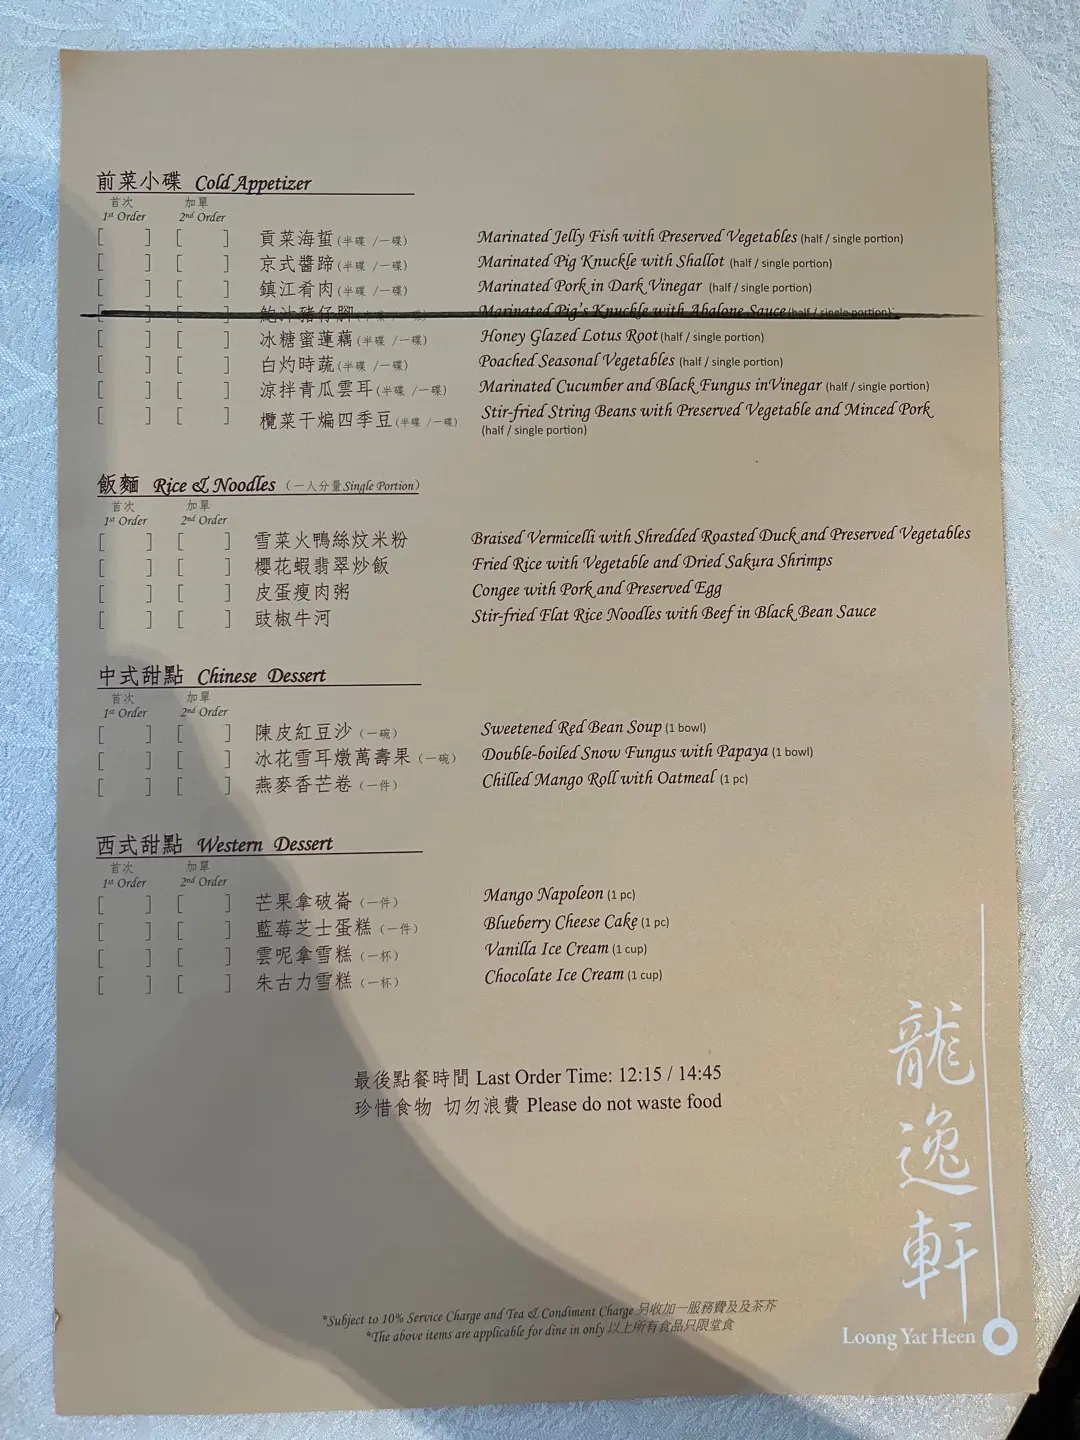 前菜小碟 Cold Appetizer
首次 加單
1st Order 2nd Order
[ ] [ ] 貢菜海蜇(半碟 /一碟) Marinated Jelly Fish with Preserved Vegetables (half / single portion)
[ ] [ ] 京式醬蹄(半碟 /一碟) Marinated Pig Knuckle with Shallot (half / single portion)
[ ] [ ] 鎮江肴肉(半碟 /一碟) Marinated Pork in Dark Vinegar (half / single portion)
[ ] [ ] 鮑汁豬仔腳(半碟 /一碟) Marinated Pig's Knuckle with Abalone Sauce (half / single portion)
[ ] [ ] 冰糖蜜蓮藕(半碟 /一碟) Honey Glazed Lotus Root (half / single portion)
[ ] [ ] 白灼時蔬(半碟 /一碟) Poached Seasonal Vegetables (half / single portion)
[ ] [ ] 涼拌青瓜雲耳(半碟 /一碟) Marinated Cucumber and Black Fungus inVinegar (half / single portion)
[ ] [ ] 欖菜干煸四季豆(半碟 /一碟) Stir-fried String Beans with Preserved Vegetable and Minced Pork
(half / single portion)
飯麵 Rice & Noodles (一人分量Single Portion)
首次 加單
1st Order 2nd Order
[ ] [ ] 雪菜火鴨絲炆米粉 Braised Vermicelli with Shredded Roasted Duck and Preserved Vegetables
[ ] [ ] 櫻花蝦翡翠炒飯 Fried Rice with Vegetable and Dried Sakura Shrimps
[ ] [ ] 皮蛋瘦肉粥 Congee with Pork and Preserved Egg
[ ] [ ] 豉椒牛河 Stir-fried Flat Rice Noodles with Beef in Black Bean Sauce
中式甜點 Chinese Dessert
首次 加單
1st Order 2nd Order
[ ] [ ] 陳皮紅豆沙 (一碗) Sweetened Red Bean Soup (1 bowl)
[ ] [ ] 冰花雪耳燉萬壽果 (一碗) Double-boiled Snow Fungus with Papaya (1 bowl)
[ ] [ ] 燕麥香芒卷 (一件) Chilled Mango Roll with Oatmeal (1 pc)
西式甜點 Western Dessert
首次 加單
1st Order 2nd Order
[ ] [ ] 芒果拿破崙 (一件) Mango Napoleon (1 pc)
[ ] [ ] 藍莓芝士蛋糕 (一件) Blueberry Cheese Cake (1 pc)
[ ] [ ] 雲呢拿雪糕 (一杯) Vanilla Ice Cream (1 cup)
[ ] [ ] 朱古力雪糕 (一杯) Chocolate Ice Cream (1 cup)
最後點餐時間 Last Order Time: 12:15 / 14:45
珍惜食物 切勿浪費 Please do not waste food
龍逸軒
Loong Yat Heen
*Subject to 10% Service Charge and Tea & Condiment Charge 另收加一服務費及及茶芥
*The above items are applicable for dine in only 以上所有食品只限堂食